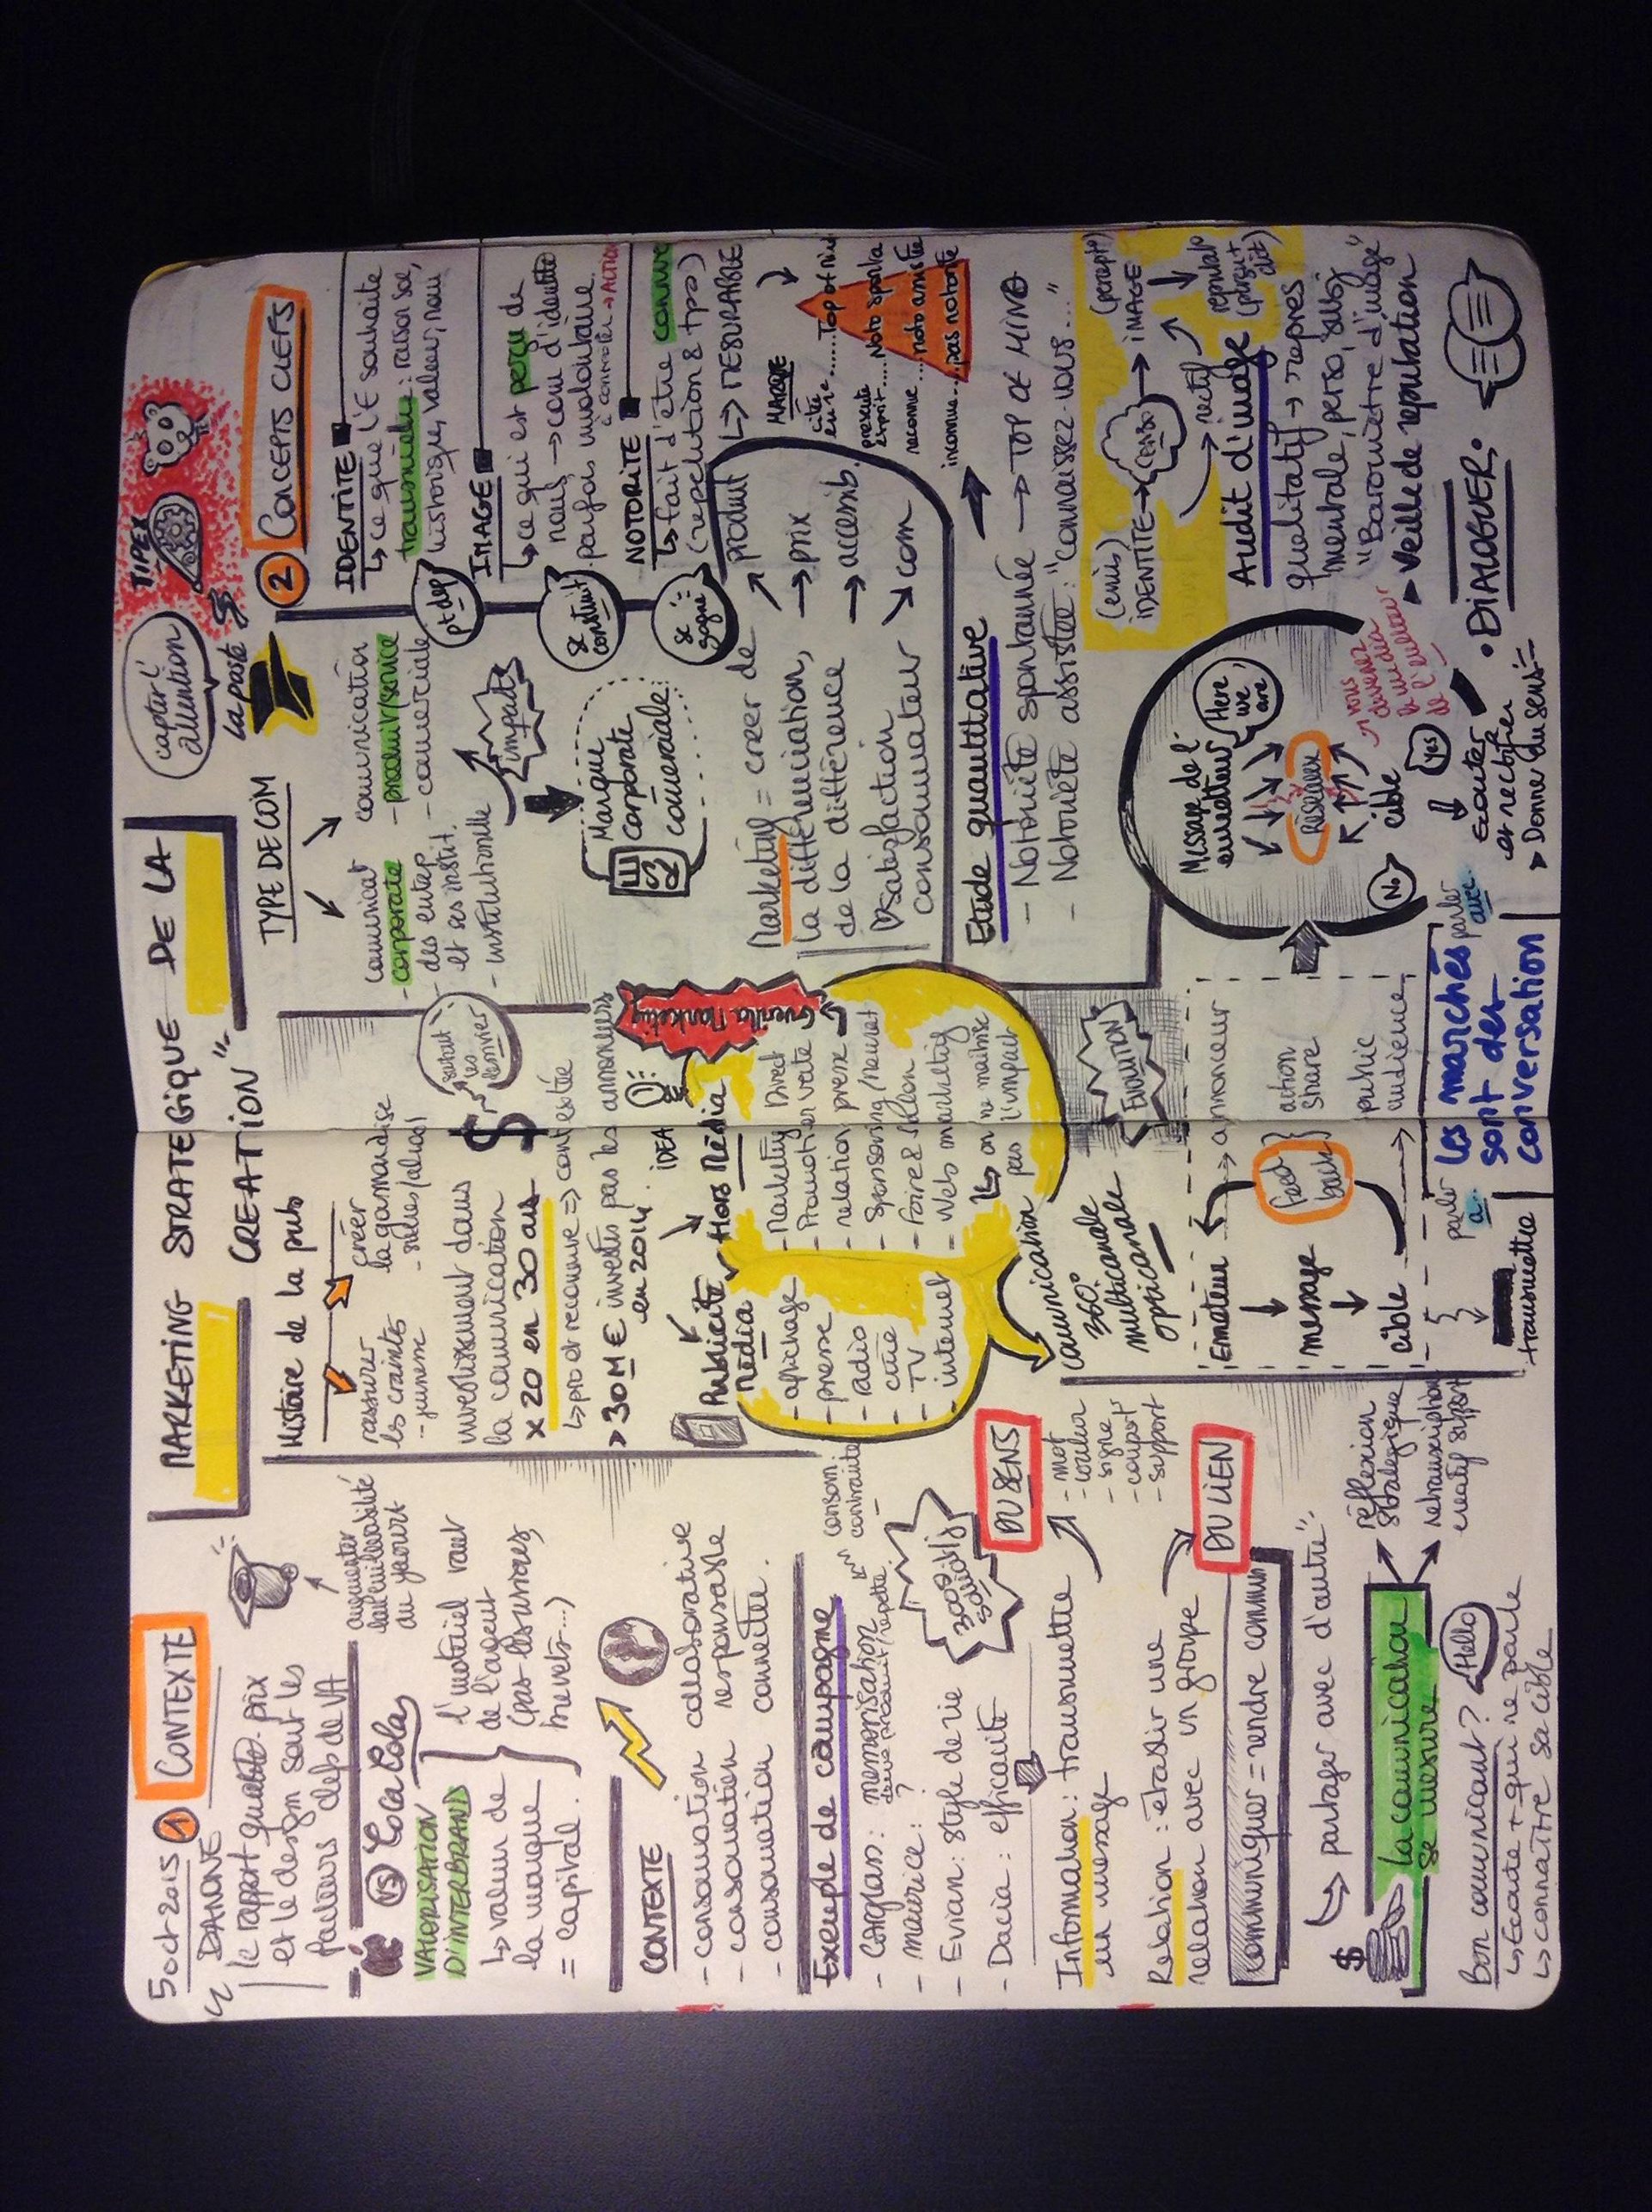 5 oct 2015
① CONTEXTE
DANONE
le rapport qualité. prix
et le design sont les
facteurs clefs de VA
augmenter
au yaourt
VS Coca Cola
VALORISATION
D'INTERBRAND
↳ valeur de
la marque
= capital.
l'materiel vaut
de l'argent
(pas les bureaux,
brevets...)
CONTEXTE
- consommation collaborative
- consommation responsable
- consommation connectée.
Exemple de campagne
- Carglass : memorisation
- maurice : ?
- Evian : style de vie
- Dacia : efficacité
consom.
contrainte
3000 €/j
Information : transmettre
un message
DU SENS
- mot
- couleur
- signe
- comport
- support
Relation : établir une
relation avec un groupe
DU LIEN
Communiquer = rendre commun
↳ partager avec d'autre"
$
La communication
se mesure
réflexion
stratégique
retranscription
creatif support
Bon communicant ? Hello
↳ Ecoute + qui ne parle
↳ connaître sa cible
MARKETING STRATEGIQUE DE LA
CREATION "
Histoire de la pub
rassurer
les craintes
- jeunesse
créer
la gourmandise
- soldes/alcool
surtout
les
investissement dans
la communication $
x 20 en 30 ans
↳ prod reconnue ⇒ contestée
> 30 M € investis pas les annonceurs
en 2014.
IDEA
Publicité
Média
- affichage
- presse
- radio
- ciné
- TV
- internet
Hors Média
- Marketing Direct
- Promotion vente
- relation presse
- Sponsoring/Mecenat
- Foire & Salon
= Web marketing
↳ on ne maitrise
pas l'impact
Guerilla Marketing
Communication
360°
multicanale
opticanale
EVOLUTION
Emetteur → annonceur
↓
message
↓
cible → public
audience
feed
back
action
share
parler
à
transmettre
Les marchés
sont des
conversation
parler
avec
capter l'
attention
TIPEX
la poste
TYPE DE COM
communicat°
- corporate
- des entrep.
et ses instit.
- institutionnelle
communication
- produit/service
- commerciale
impacts
Marque
Corporate
commerciale
Marketing = créer de
la différenciation,
de la différence
Satisfaction
consommateur
produit
→ prix
→ accessib.
com
② CONCEPTS CLEFS
pt dep
IDENTITE
↳ ce que l'E souhaite
transmettre : raison soc,
historique, valeur, nom
se
construit
IMAGE
↳ ce qui est perçu de
nous → com d'identité
parfois involontaire.
à connoter → ACTION
se
gagne
NOTORITE
↳ fait d'être connue
(répetition & tps)
↳ MESURABLE
MARQUE
cité
en 1er ...... Top of mind
présente
esprit ..... Noto sponta
reconnue .... noto assistée
inconnue .... pas notorité
Etude quantitative
- Notoriété spontanée → TOP OF MIND
- Notoriété assistée : "connaissez-vous..."
(émis)
IDENTITÉ → CONSO → IMAGE
(percept°)
rectif
reputat°
Audit d'image
qualitatif → repres
mentale, perso, subj
"Barometre d'image"
➤ Veille de reputation
Message de l'
emetteur
Here
we
are
Réseaux
cible
vous
devenez
le médiateur
de l'emetteur
No
Yes
↓
écouter
et rectifier
➤ Donne du sens
• DIALOGUER •